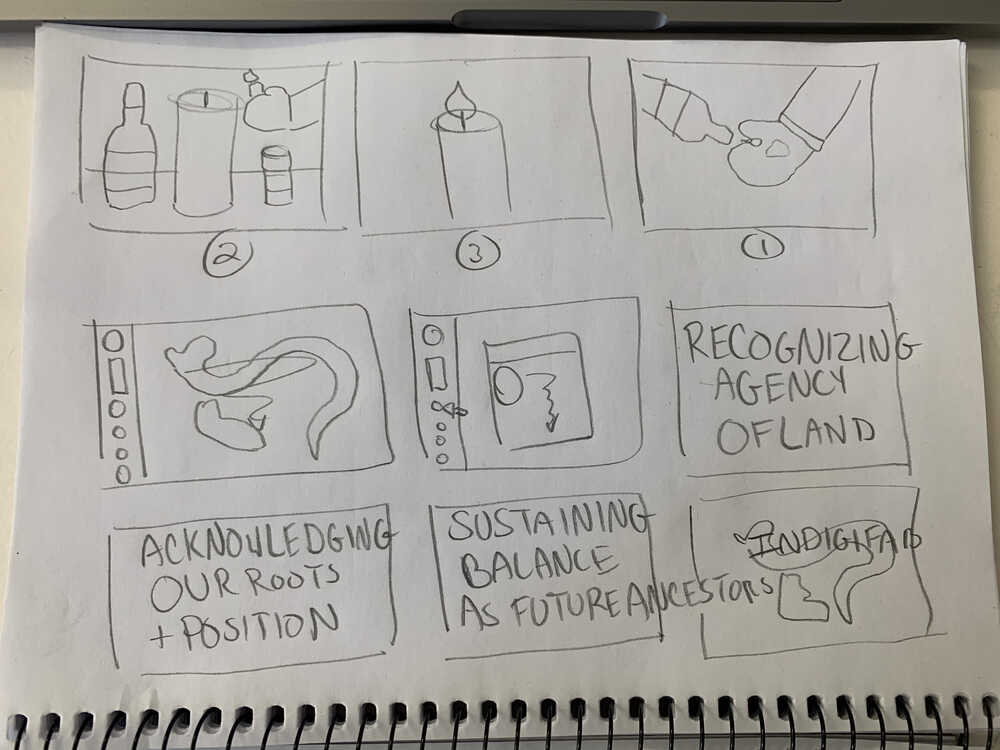 2
3
1
RECOGNIZING
AGENCY
OF LAND
ACKNOWLEDGING
OUR ROOTS
+ POSITION
SUSTAINING
BALANCE
AS FUTURE ANCESTORS
INDIGIFAB